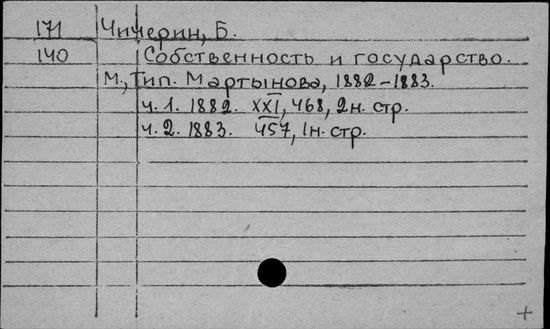 171 Чичерин, Б.
140 Собственность и государство.
М., Тип. Мартынова, 1882-1883.
ч. 1. 1882. XXI, 468, 2н. стр.
ч. 2. 1883. 457, 1н. стр.
+